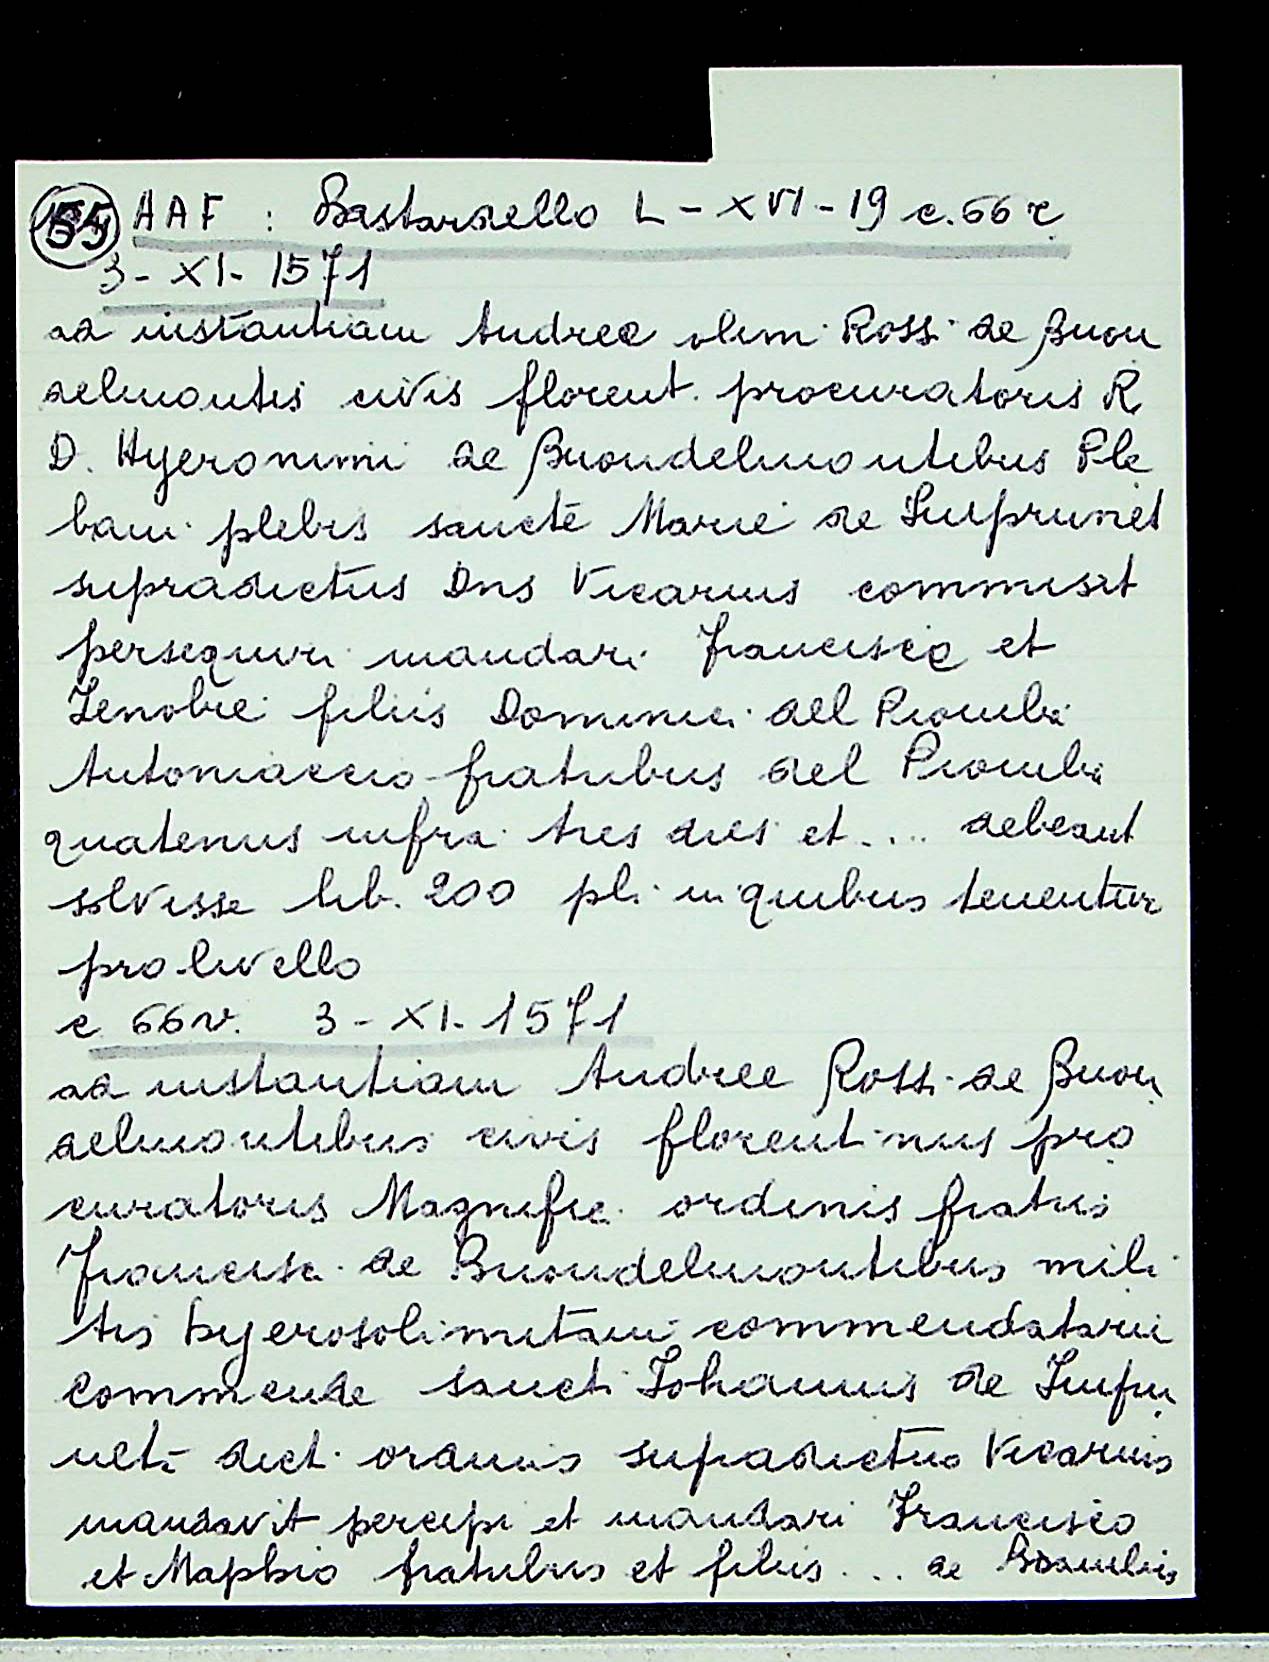 155 AAF : Bastardello L - XVI - 19 c. 66 r
3 - XI - 1571
ad instantiam Andree olim Rossi de Buon
delmontis civis florent. procuratoris R
D. Hyeronimi de Buondelmontibus Ple
bani plebis sancte Marie de Imprunet
supradictus Dns Vicarius commisit
persequiri mandari Francisco et
Zenobie filiis Dominici del Piombi
Antoniaccio fratribus del Piombi
quatenus infra tres dies et .... debeant
solvisse lib. 200 pli in quibus tenentur
pro livello
c 66v. 3 - XI - 1571
ad instantiam Andree Rossi de Buon
delmontibus civis florentinus pro
curatoris Magnific. ordinis fratris
Francisci de Buondelmontibus mili
tis hyerosolimitani commendatarii
commende sancti Johannis de Impru
neta dict. ordinis supradictus Vicarius
mandavit percipi et mandari Francisco
et Maphio fratribus et filiis ... de